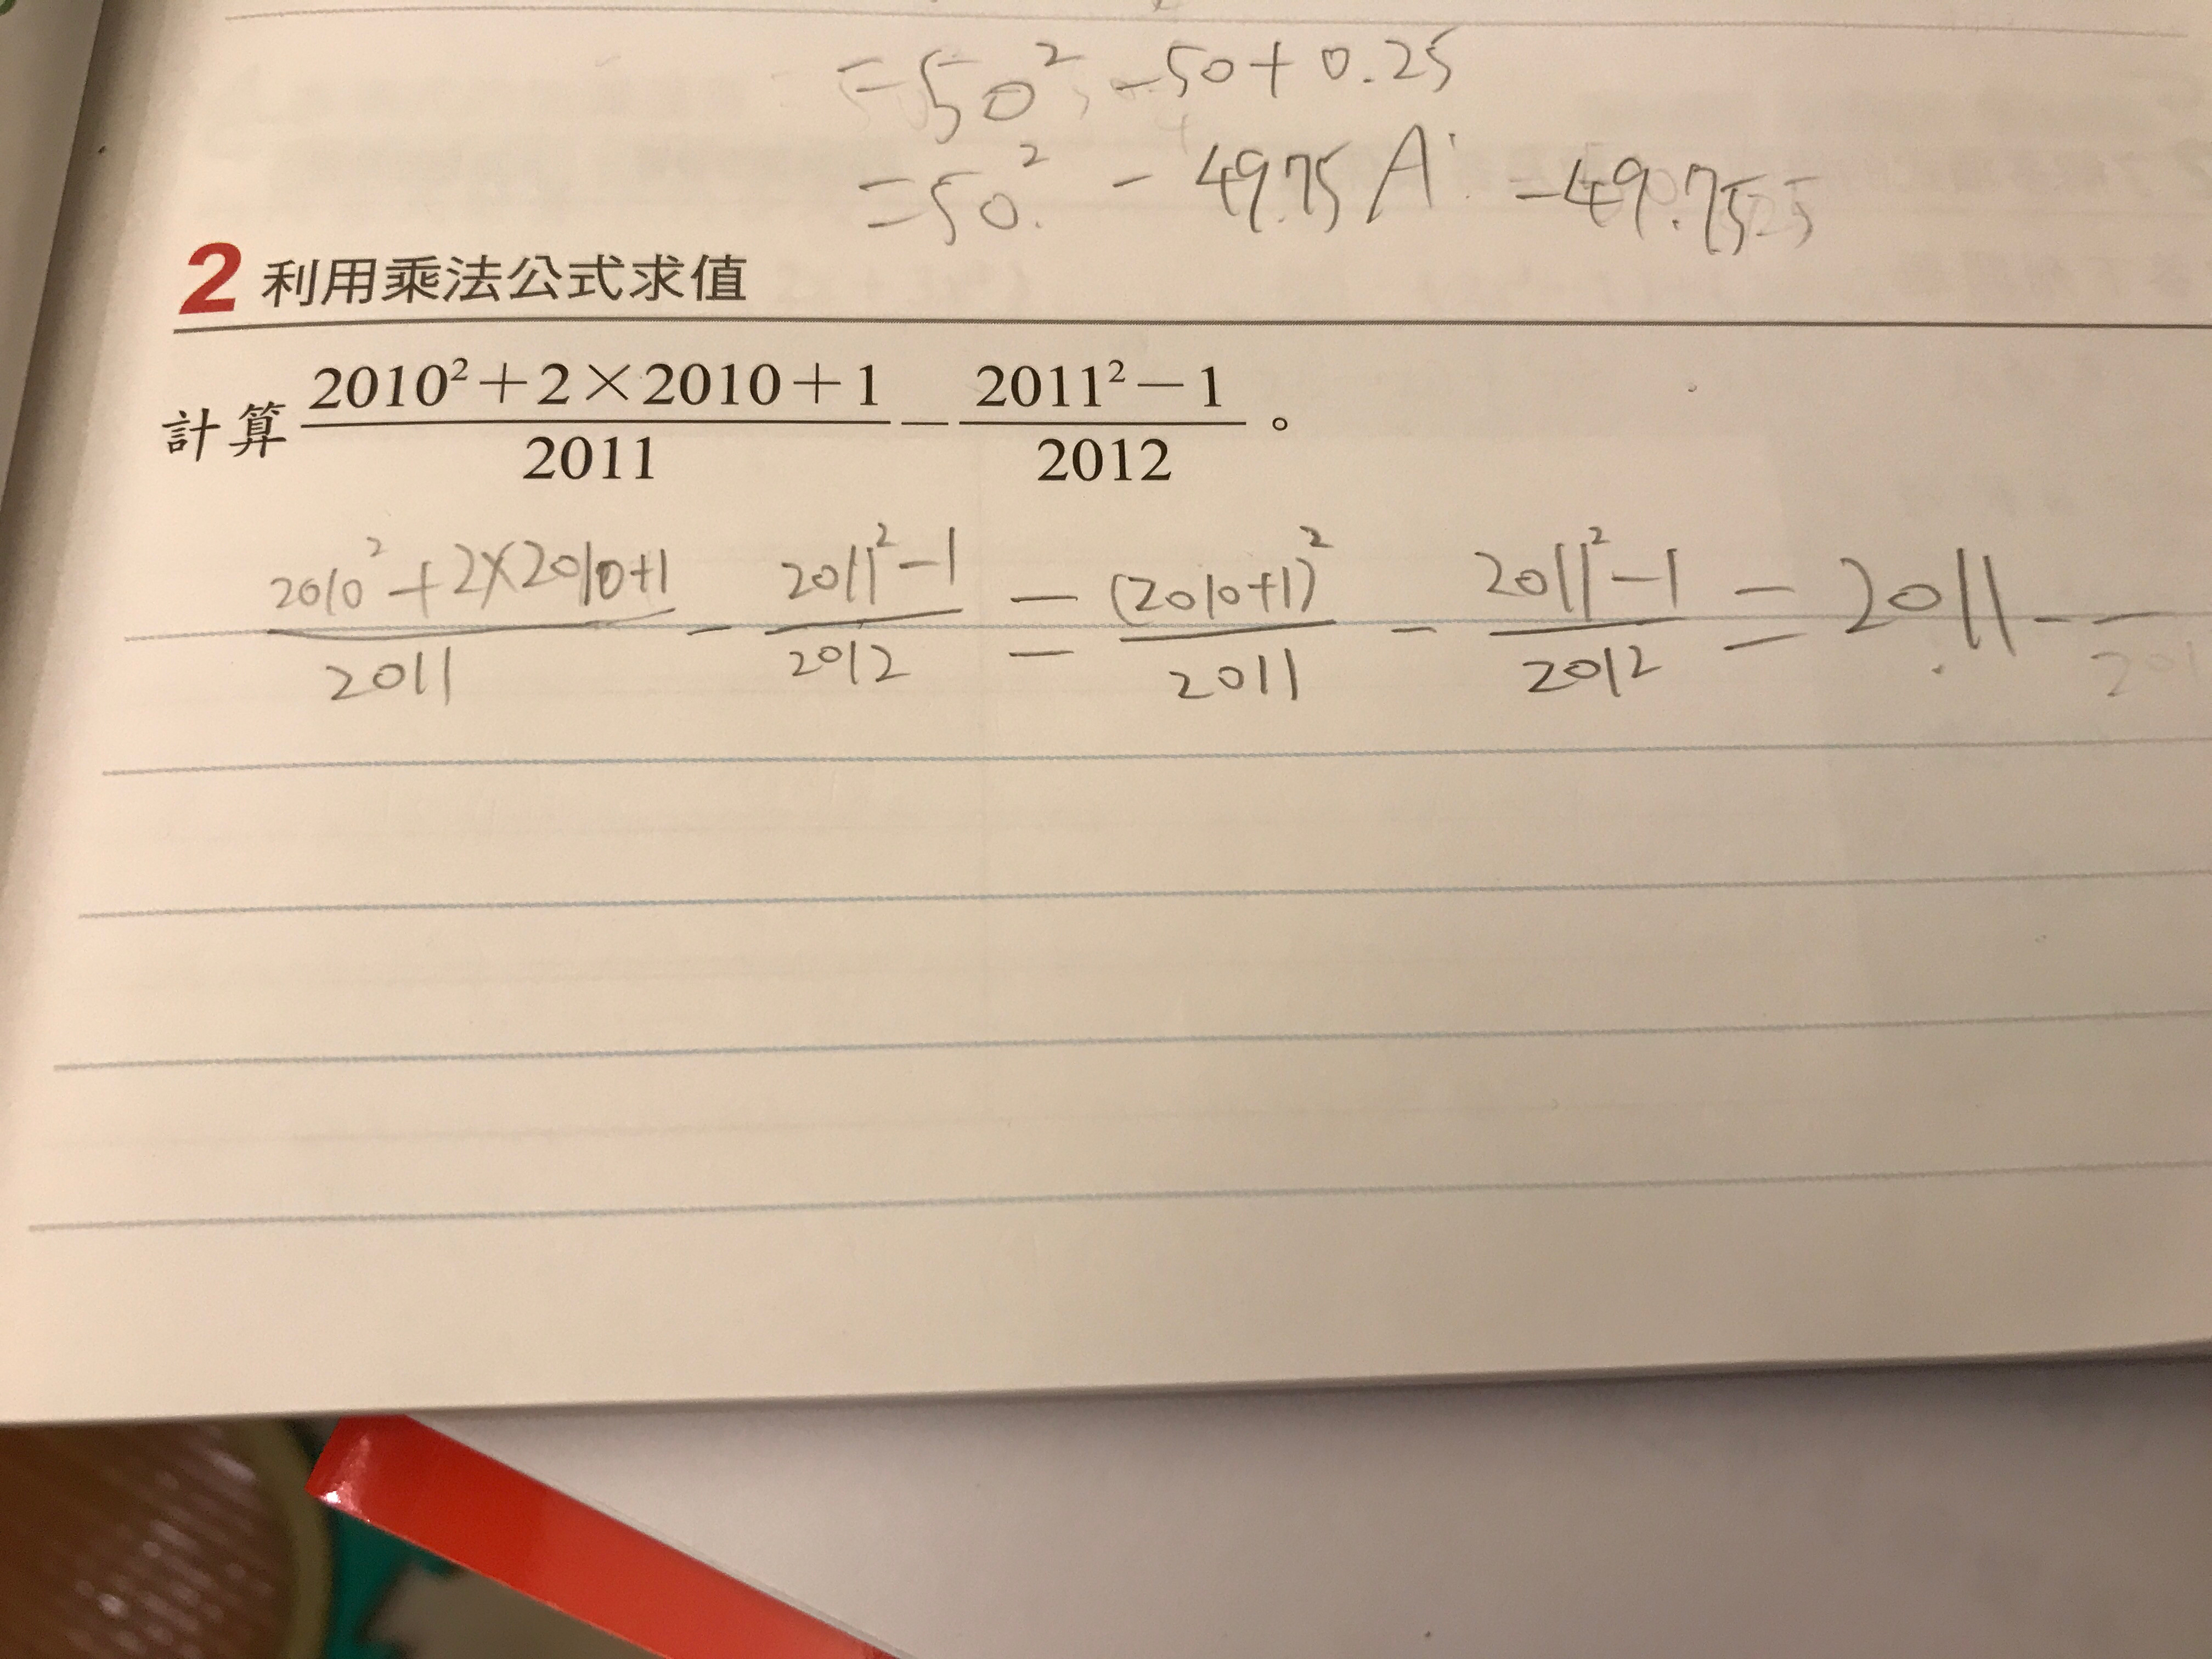 =50² -50+0.25
=50² - 49.75 A: -49.75
2 利用乘法公式求值
計算 (2010²+2×2010+1)/2011 - (2011²-1)/2012 。
(2010²+2×2010+1)/2011 - (2011²-1)/2012 = (2010+1)²/2011 - (2011²-1)/2012 = 2011 -